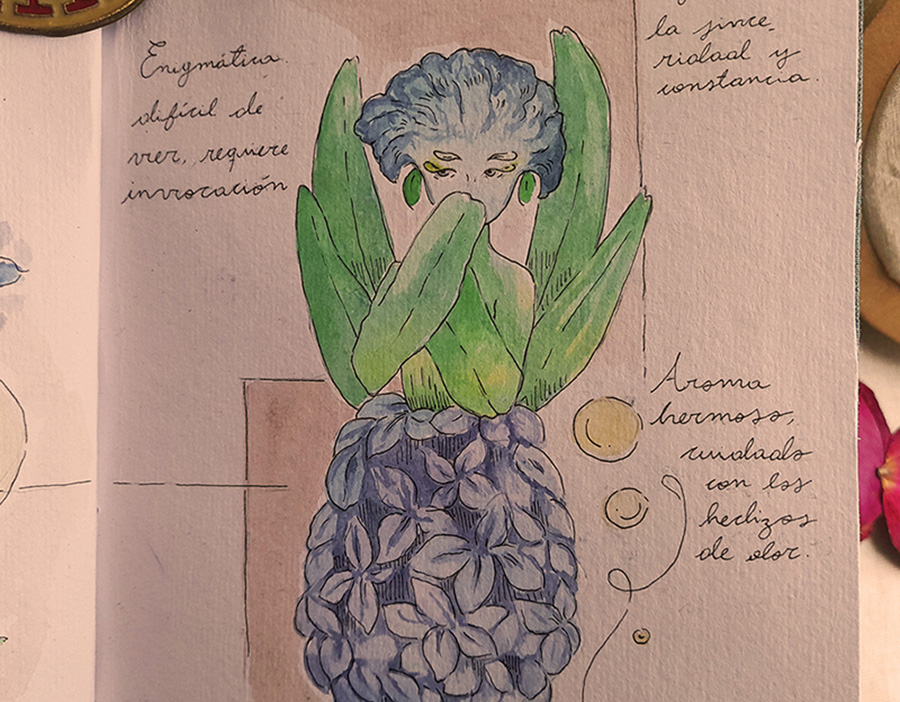 Enigmática.
difícil de
ver, requiere
invocación
la since_
ridad y
constancia.
Aroma
hermoso,
cuidado
con los
hechizos
de olor.